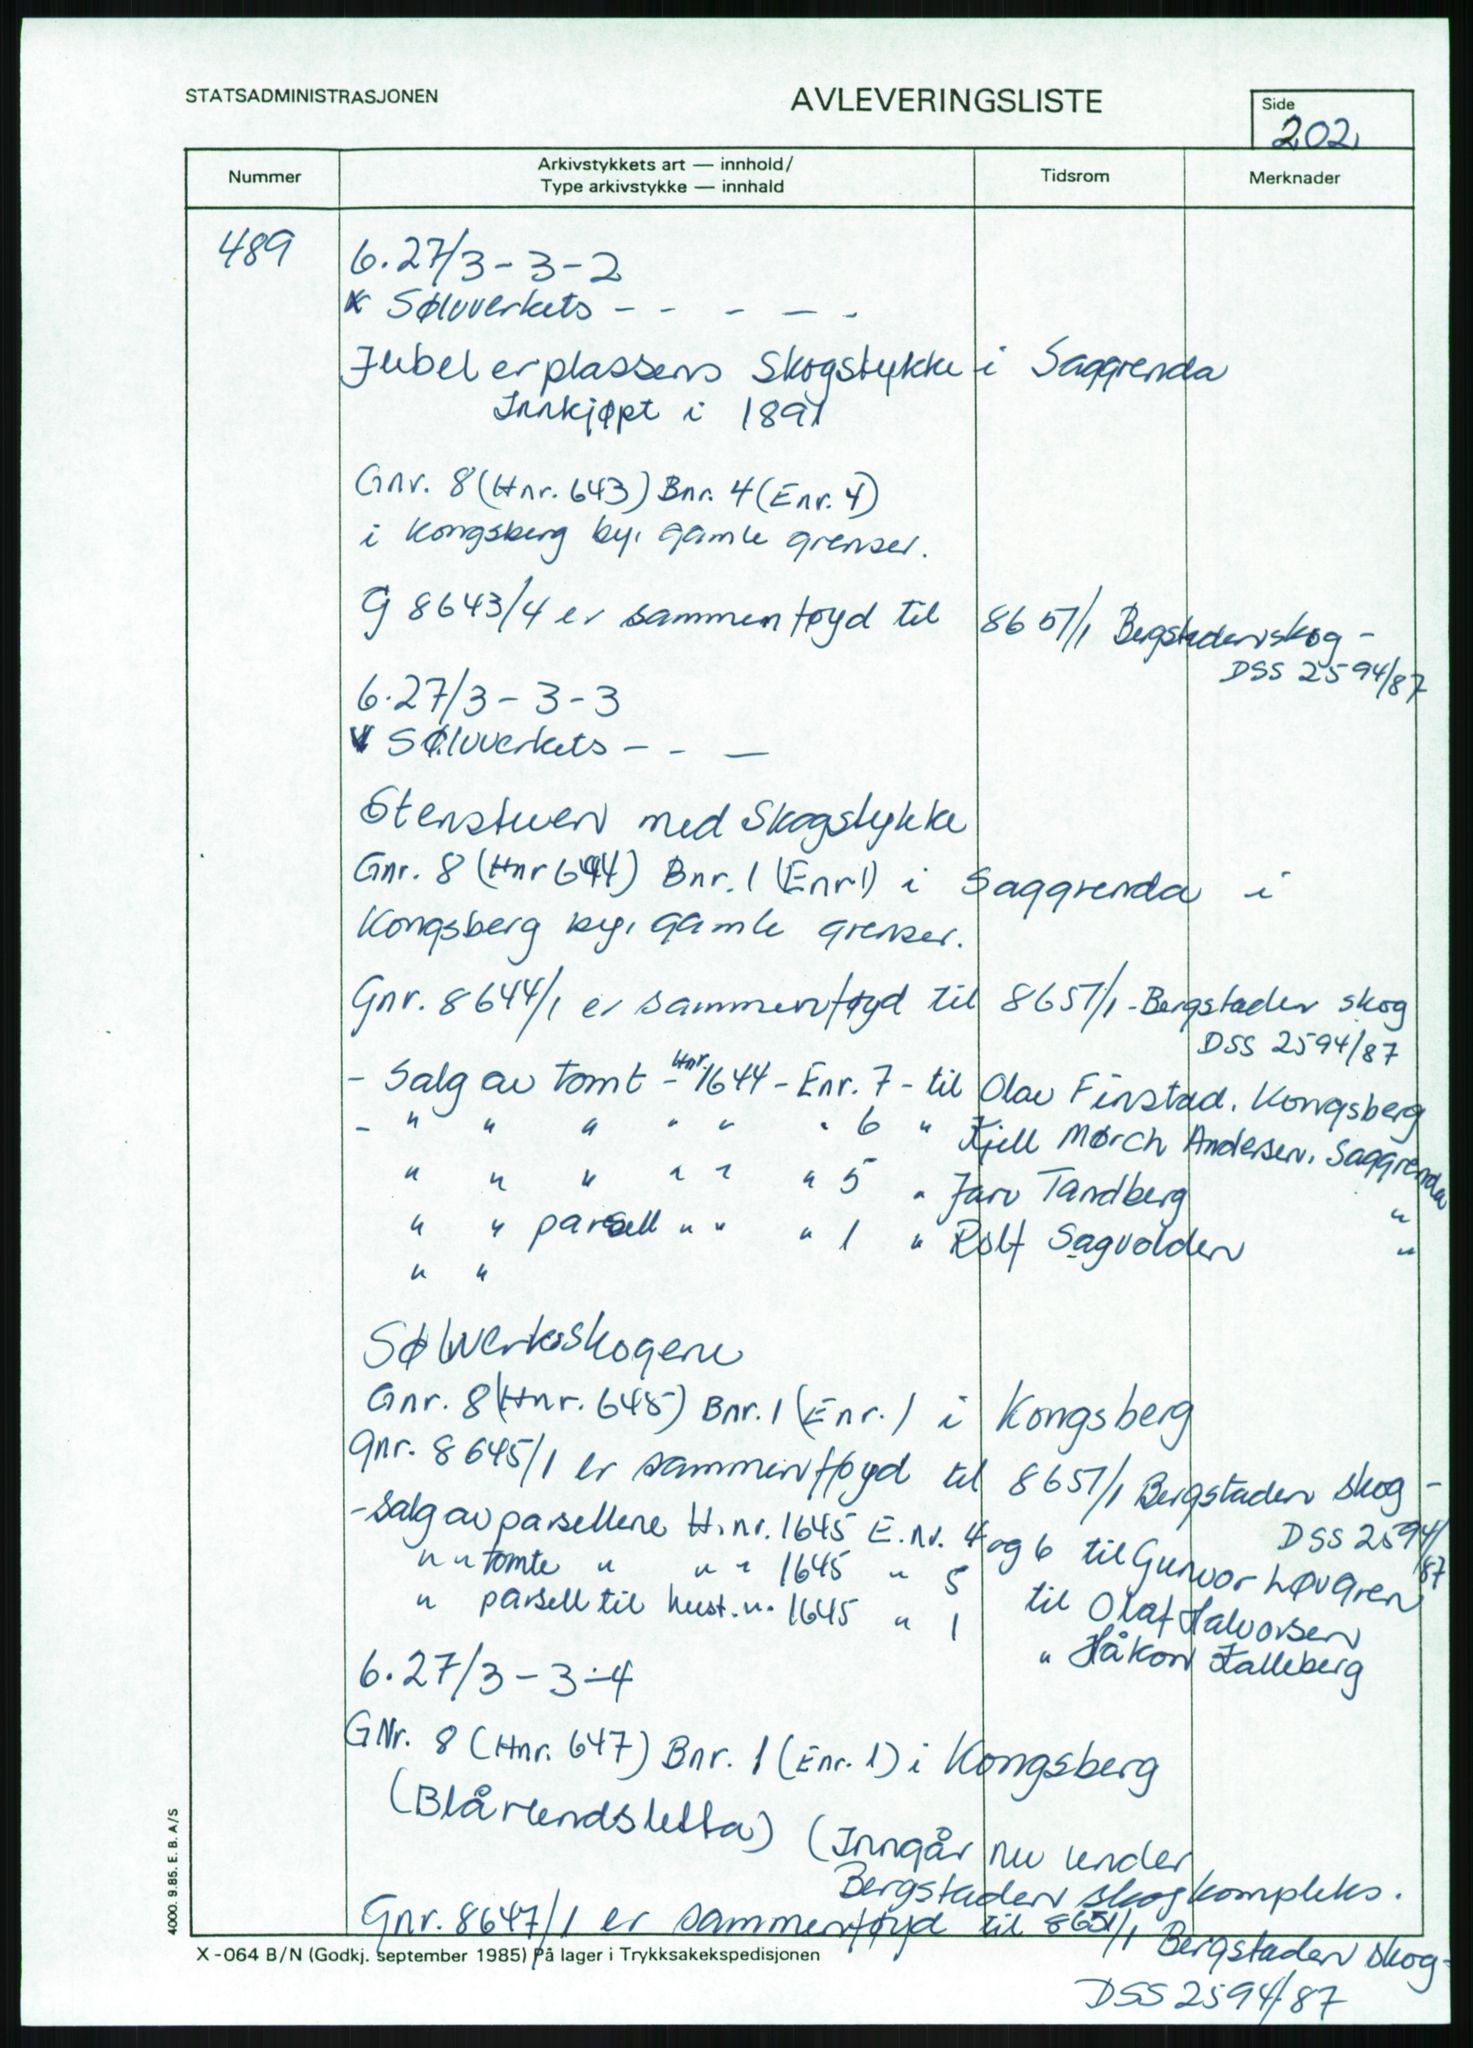 STATSADMINISTRASJONEN
AVLEVERINGSLISTE
Side
202
Nummer
Arkivstykkets art — innhold/
Type arkivstykke — innhald
Tidsrom
Merknader
489
6.27/3-3-2
Sølvverkets - - - - -
Jubelerplassens Skogstykke i Saggrenda
Innkjøpt i 1891
Gnr. 8 (Hnr. 643) Bnr. 4 (Enr. 4)
i Kongsberg by, gamle grenser.
G 8643/4 er sammenføyd til 8651/1 Bergstadens skog -
DSS 2594/87
6.27/3-3-3
Sølvverkets - - -
Stenstuen med Skogstykke
Gnr. 8 (Hnr 644) Bnr. 1 (Enr 1) i Saggrenda i
Kongsberg by, gamle grenser.
Gnr. 8644/1 er sammenføyd til 8651/1 - Bergstaden skog
DSS 2594/87
- Salg av tomt - Hnr. 1644 - Enr. 7 - til Olav Finstad, Kongsberg
- " " " " " " 6 " Kjell Mørch Andersen, Saggrenda
" " " " " " 5 " Jan Tandberg "
" " parsell " " " 1 " Rolf Sagvolden "
" "
Sølvverksskogene
Gnr. 8 (Hnr. 645) Bnr. 1 (Enr. 1 i Kongsberg
Gnr. 8645/1 er sammenføyd til 8651/1 Bergstaden skog -
DSS 2594/87
- Salg av parsellene H.nr. 1645 E.nr. 4 og 6 til Gunvor Løvgren
" " tomte " " " 1645 " 5 til Olaf Halvorsen
" parsell til hust.n. 1645 " 1 " Håkon Kalleberg
6.27/3-3-4
GNr. 8 (Hnr. 647) Bnr. 1 (Enr. 1) i Kongsberg
(Blårundsletta) (Inngår nu under
Bergstaden skogkompleks.
Gnr. 8647/1 er sammenføyd til 8651/1 Bergstaden skog -
DSS 2594/87
X-064 B/N (Godkj. september 1985) På lager i Trykksakekspedisjonen
4000. 9.85. E. B. A/S